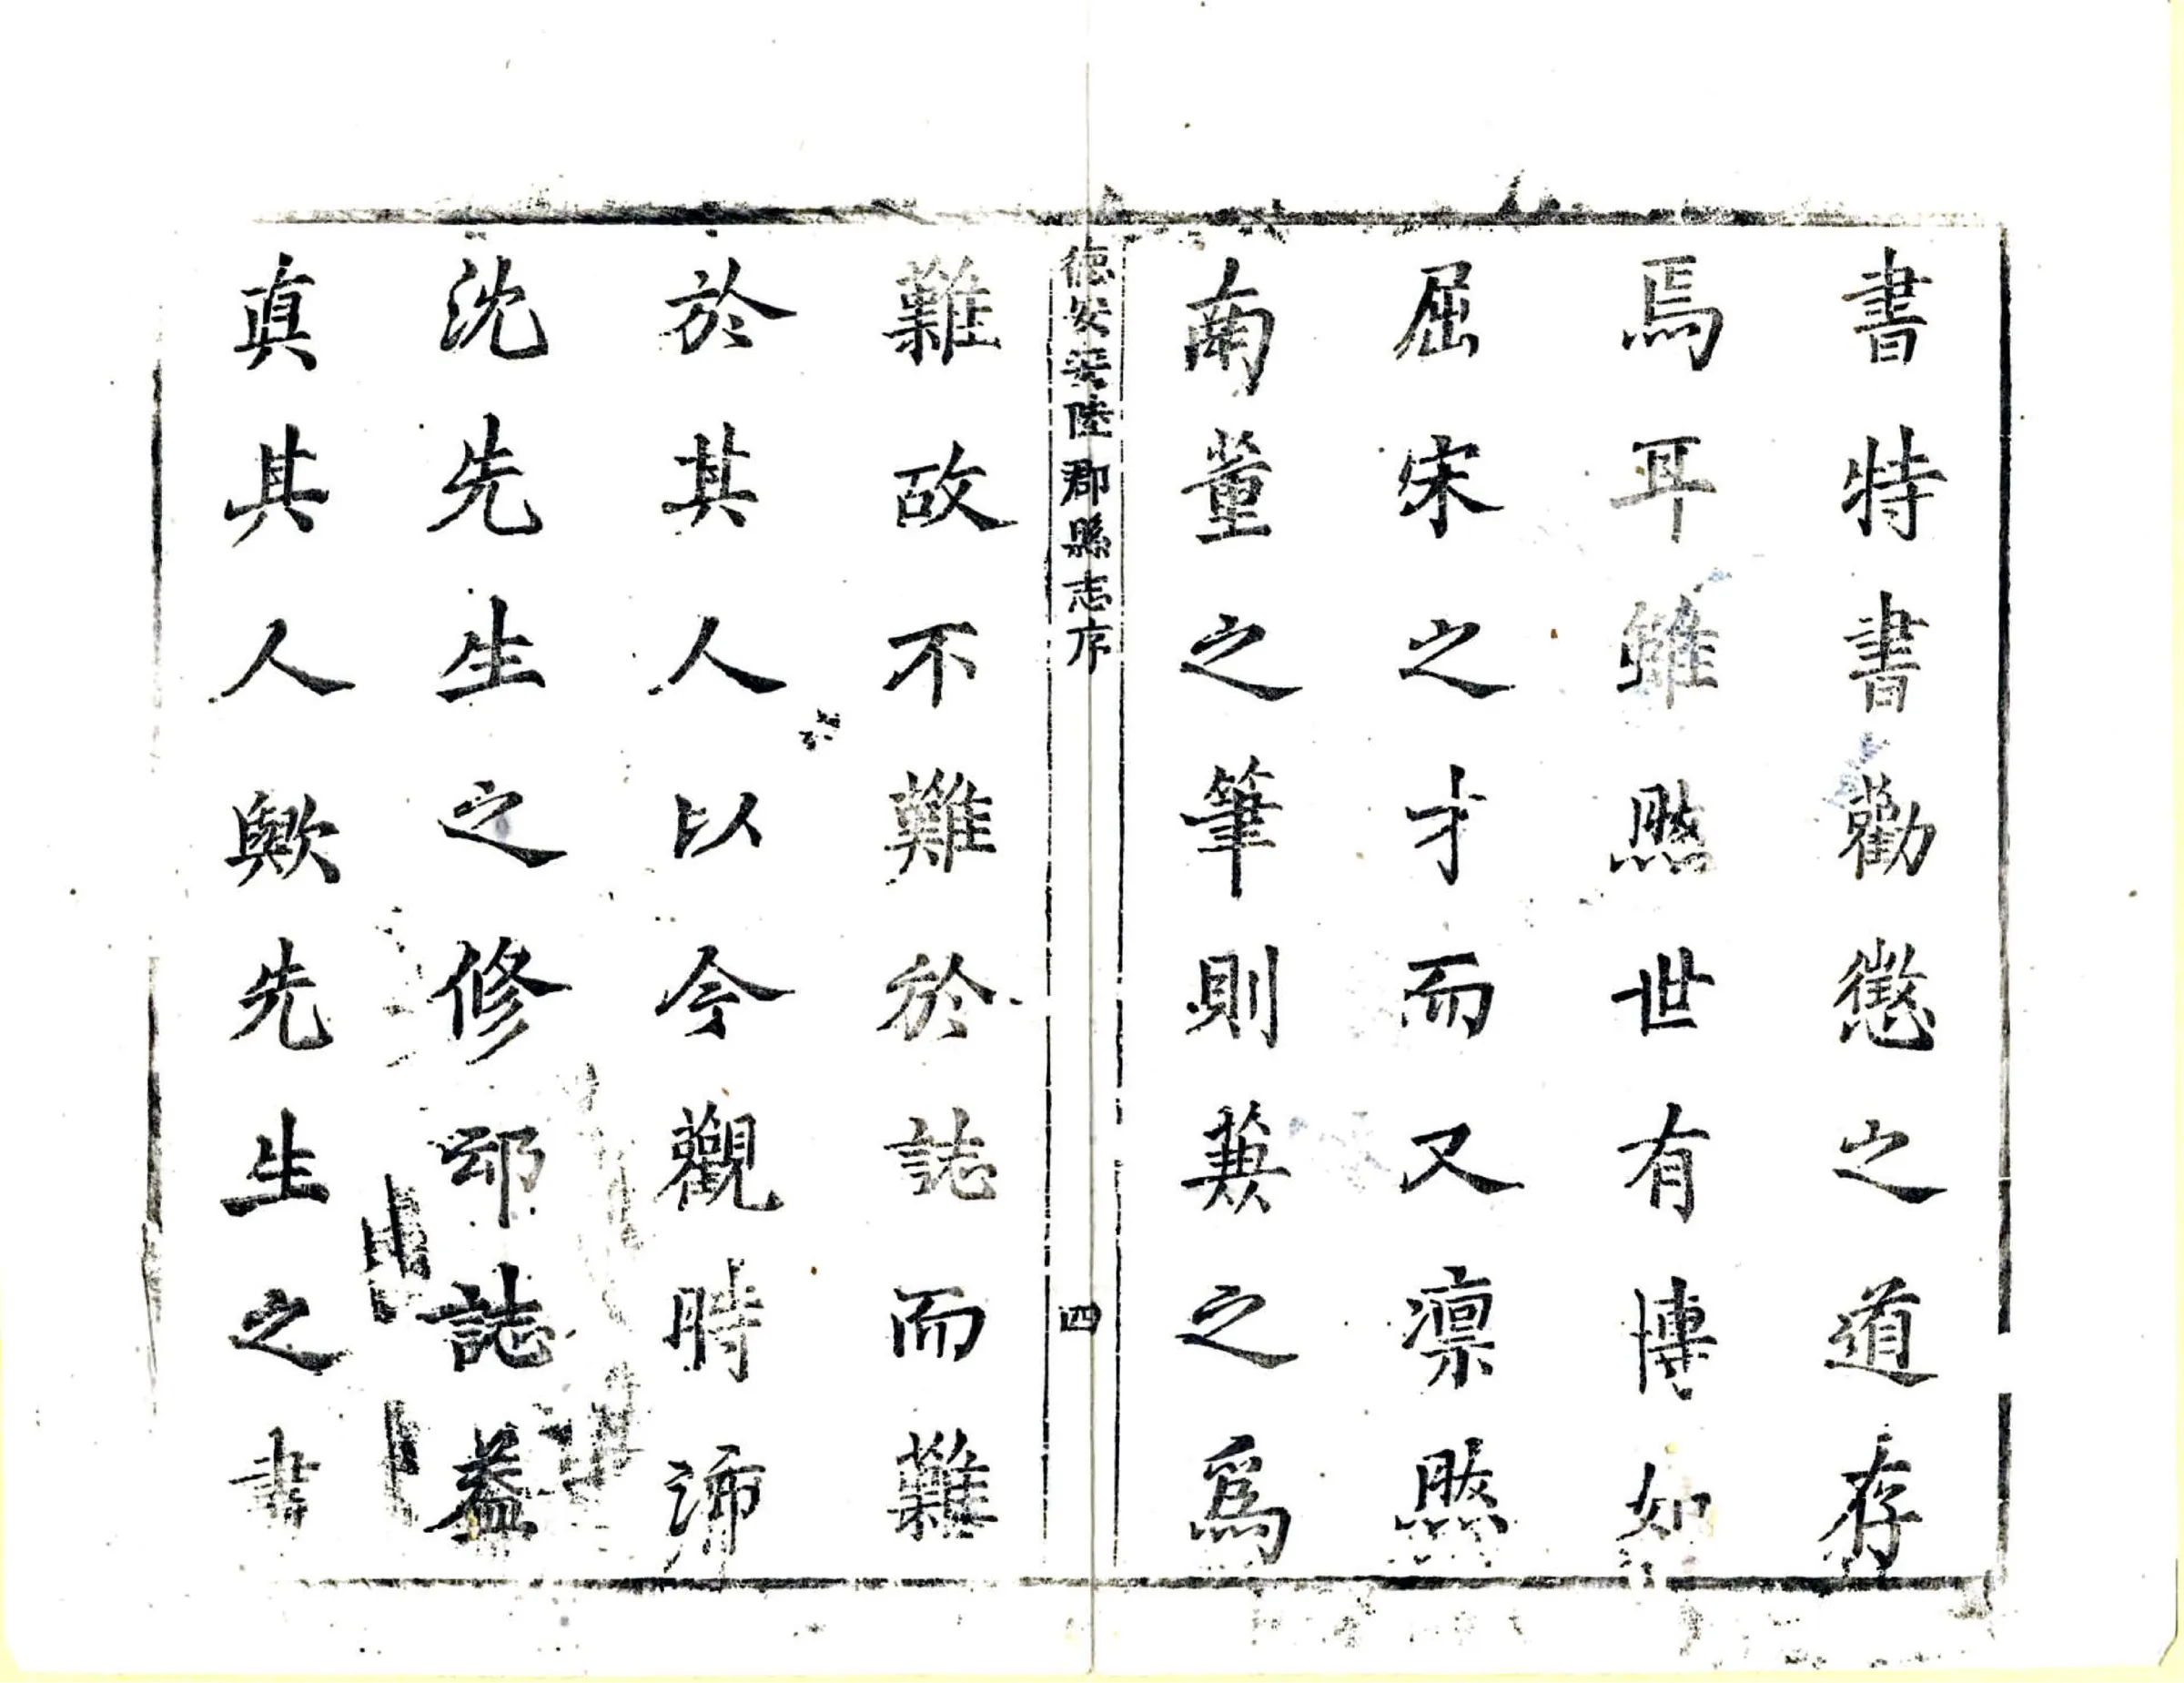 書特書勸懲之道存
焉耳雖然世有博如
屈宋之才而又凛然
南董之筆則兼之爲
德安安陸郡縣志序
四
難故不難於誌而難
於其人以今觀時沛
沈先生之修邔誌葢
真其人歟先生之書